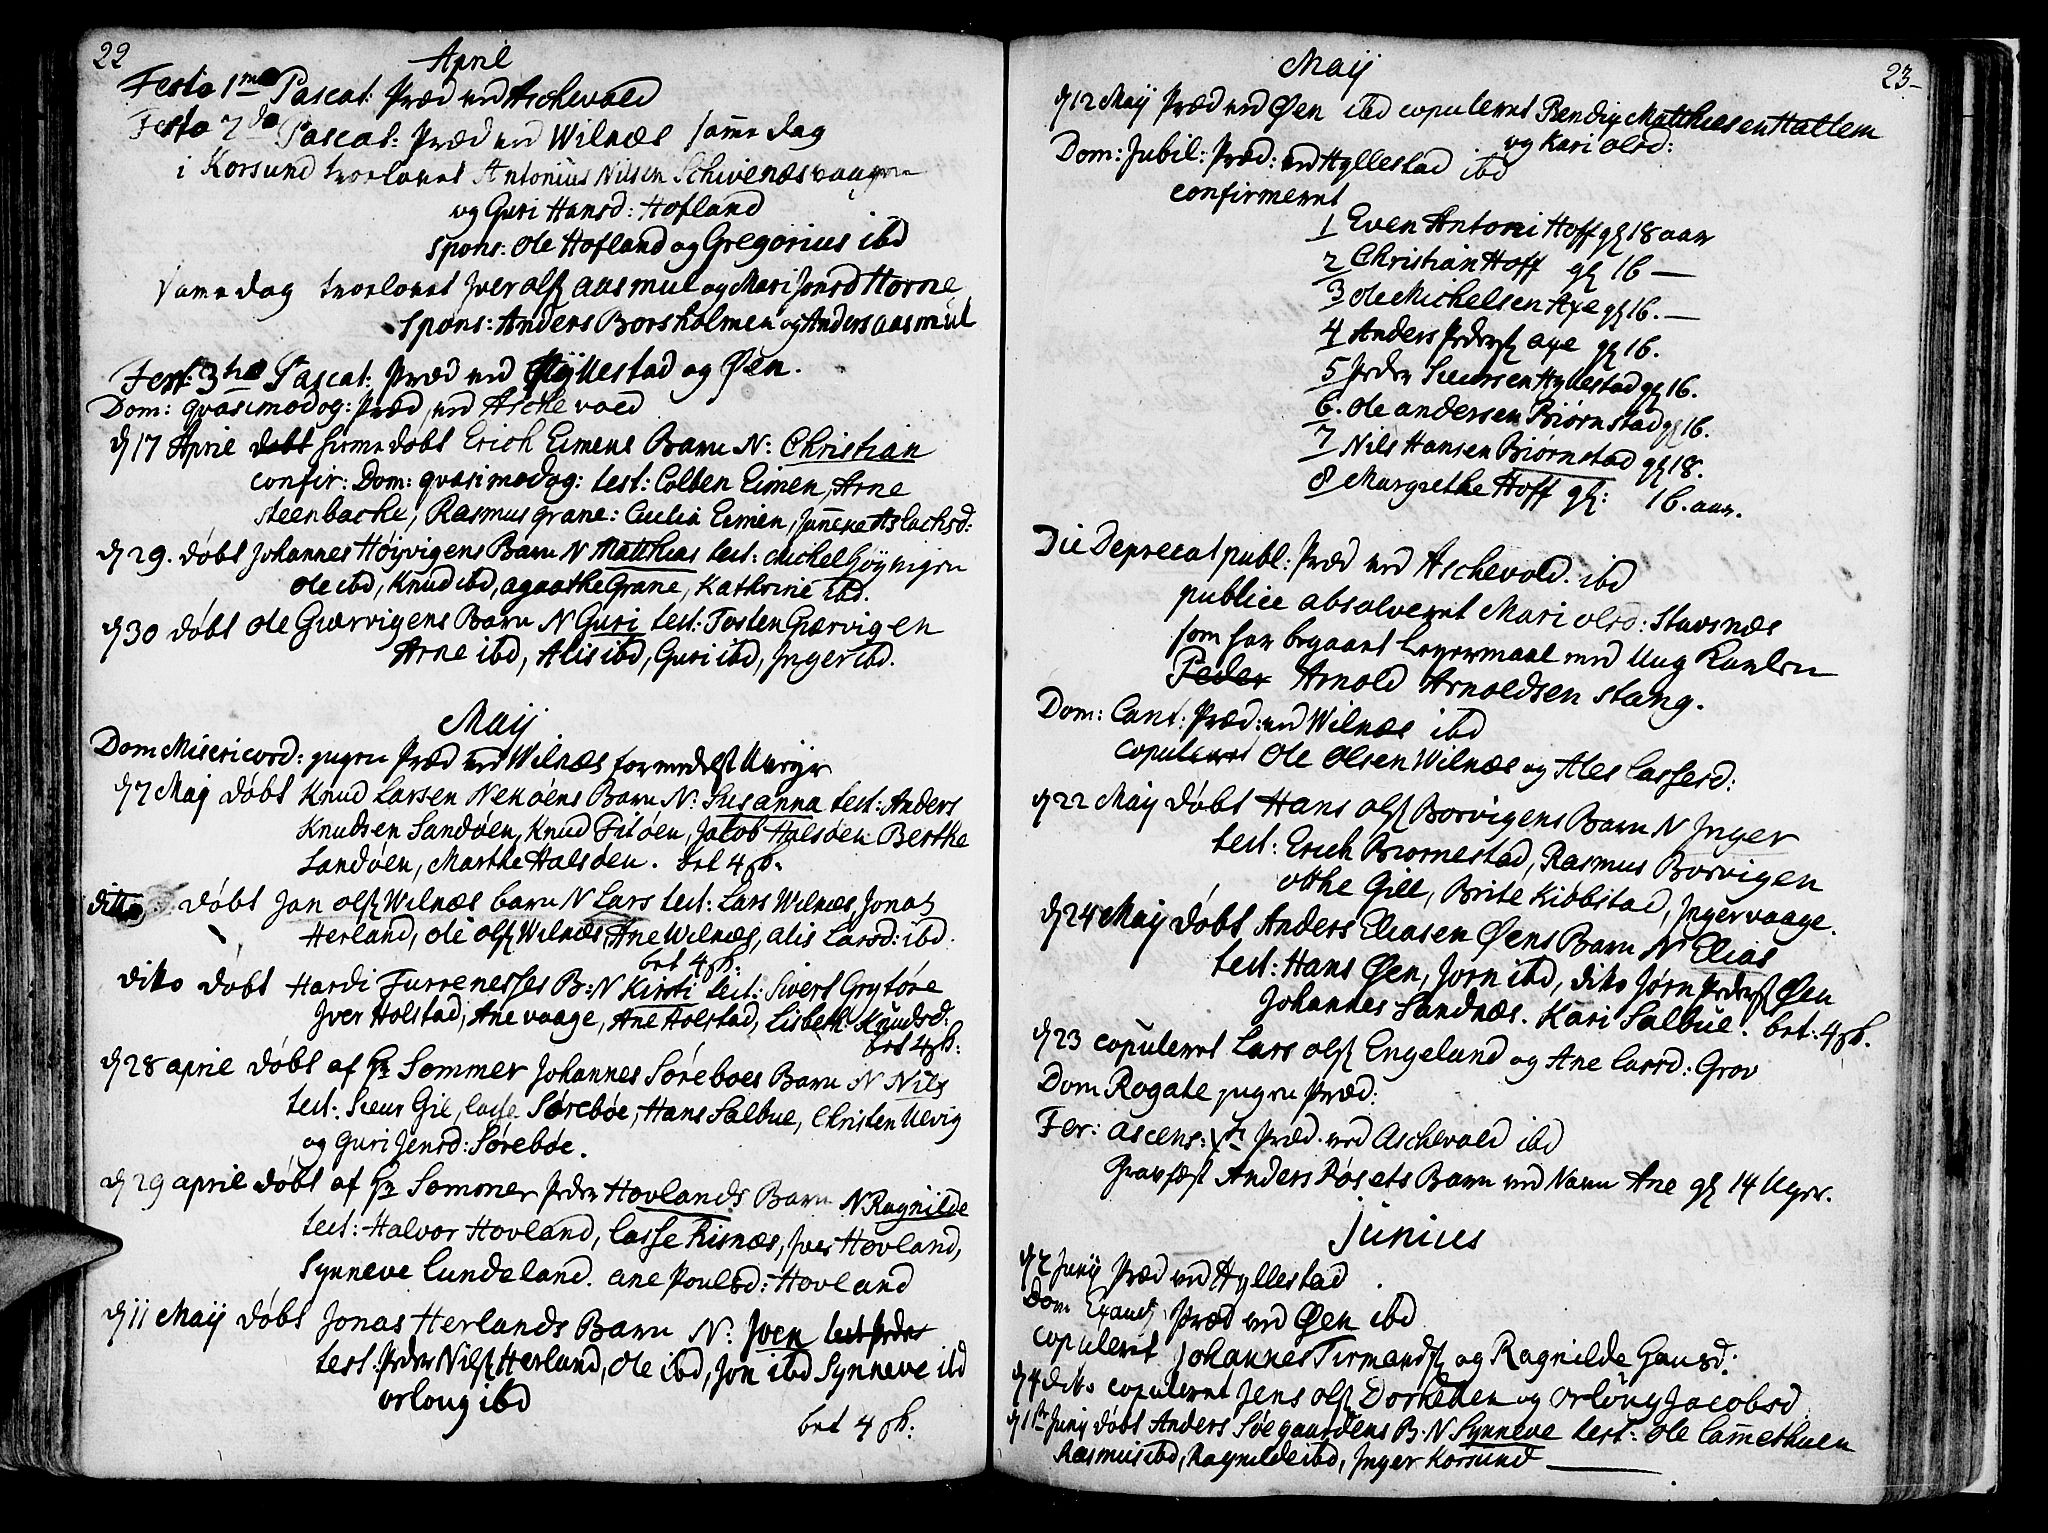 22
April
Festo 1ma Pascat: Præd ved Aschevold
Festo 2da Pascat: Præd ved Wilnæs samme dag
i Korsund trorlovet Antonius Nilsen Schivenæsvaagen
og Guri Hansd: Hofland
spons: Ole Hofland og Gregorius ibd
samme dag trorlovet Iver Ols: Aasmul og Mari Jonsd Horne
spons: Anders Borsholmen og Anders Aasmul
Fest: 3tia Pascat: Præd ved Hyllestad og Øen.
Dom: Qvasimodog: Præd, ved Aschevold
d 17 April dobt hiemedobt Erich Eimens Barn N: Christian
confir: Dom: qvasimodog: test: Colben Eimen, Arne
steenbacke, Rasmus Grane: Cicilia Eimen, Janneke Aslachsd:
d 29. dobt Johannes Høyvigens Barn N Matthias test: Michel Høyvigen
Ole ibd, Knud ibd, agaathe Grane, Kathrine ibd.
d 30 dobt Ole Giærvigens Barn N Guri test: Tosten Giærvigen
Arne ibd, Alis ibd, Guri ibd, Inger ibd.
Maij
Dom Misericord: ingen Præd ved Wilnæs formedelst Uveyr
d 7 Maij døbt Knud Larsen Nekøens Barn N: Susanna test: Anders
Knudsen Sandøen, Knud Filøen, Jacob Halsøen Berthe
Sandøen, Marthe Halsøen. bet 4 sh.
ditto døbt Jan ols: Wilnæs barn N Lars test: Lars Wilnæs, Jonas
Herland, Ole ols: Wilnæs, Ane Wilnæs, alis Larsd: ibd.
bet 4 sh:
dito døbt Hardi Furrenesses B: N Kirsti test: Sivert Grytøre
Iver Holstad, Ane vaage, Ane Holstad, Lisbeth Knudsd:
bet 4 sh:
d 28 april døbt af Hr Sommer Johannes Søreboes Barn N Nils
test: Siur Gil, Lasse Sørebøe, Hans Salbue, Christen Ulvig
og Guri Jensd: Sørebøe.
d 29 april døbt af Hr Sommer Peder Hovlands Barn N Ragnilde
test: Halvor Hovland, Lasse Risnæs, Iver Hovland,
Synneve Lundeland. ane Poulsd: Hovland
d 11 Maij døbt Jonas Herlands Barn N: Iven test Peder
test: Peder Nils: Herland, Ole ibd, Jon ibd Synneve ibd
orloug ibd
bet 4 sh:
23
Maij
d 12 Maij Præd ved Øen ibd copuleret Bendix Matthiesen Hattem
og Kari Olsd:
Dom: Jubil: Præd: ved Hyllestad ibd
confirmeret
1 Even Antoni Hoff gl 18 aar
2 Christian Hoff gl 16 —
3 Ole Michelsen Axe gl 16. —
4 Anders Peders: axe gl 16.
5 Peder Siursen Hyllestad gl 16.
6. Ole andersen Biørnstad gl 16.
7 Nils Hansen Biørnstad gl 18.
8 Margrethe Hoff gl: 16. aar.
Die Deprecat publ: Præd ved Aschevold. ibd
publice absolveret Mari Olsd: Stavsnæs
som har begaaet Leyermaal med Ung Karlen
Peder Arnold Arnoldsen Stang.
Dom: Cant: Præd: ved Wilnæs ibd
copuleret Ole Olsen Wilnæs og Ales Lassesd:
d 22 Maij døbt Hans ols: Borvigens Barn N Inger
test: Erich Biornestad, Rasmus Borvigen
otthe Gill, Brite Kibbstad, Inger vaage.
d 24 Maij døbt Anders Eliasen Øens Barn N Elias
test: Hans Øen, Jorn ibd, dito Jørn Peders: Øen
Johannes Sandnæs. Kari Salbue. bet: 4 sh.
d 23 copuleret Lars ols: Engeland og Ane Larsd: Grov
Dom Rogate ingen Præd:
Fer: ascens: Præd. ved Aschevold ibd
Gravfæst Anders Røsets Barn ved Navn Ane gl 14 Uger.
Junius
d 2 Junij Præd ved Hyllestad
Dom Exaud: Præd ved Øen ibd
copuleret Johannes Tirmands: og Ragnilde Gausd:
d 4 dito copuleret Jens ols: Dorheden og Orloug Jacobsd
d 1ste Junij døbt Anders Søegaardens B: N Synneve test: Ole Lammethuen
Rasmus ibd, Ragnilde ibd, Inger Korsund